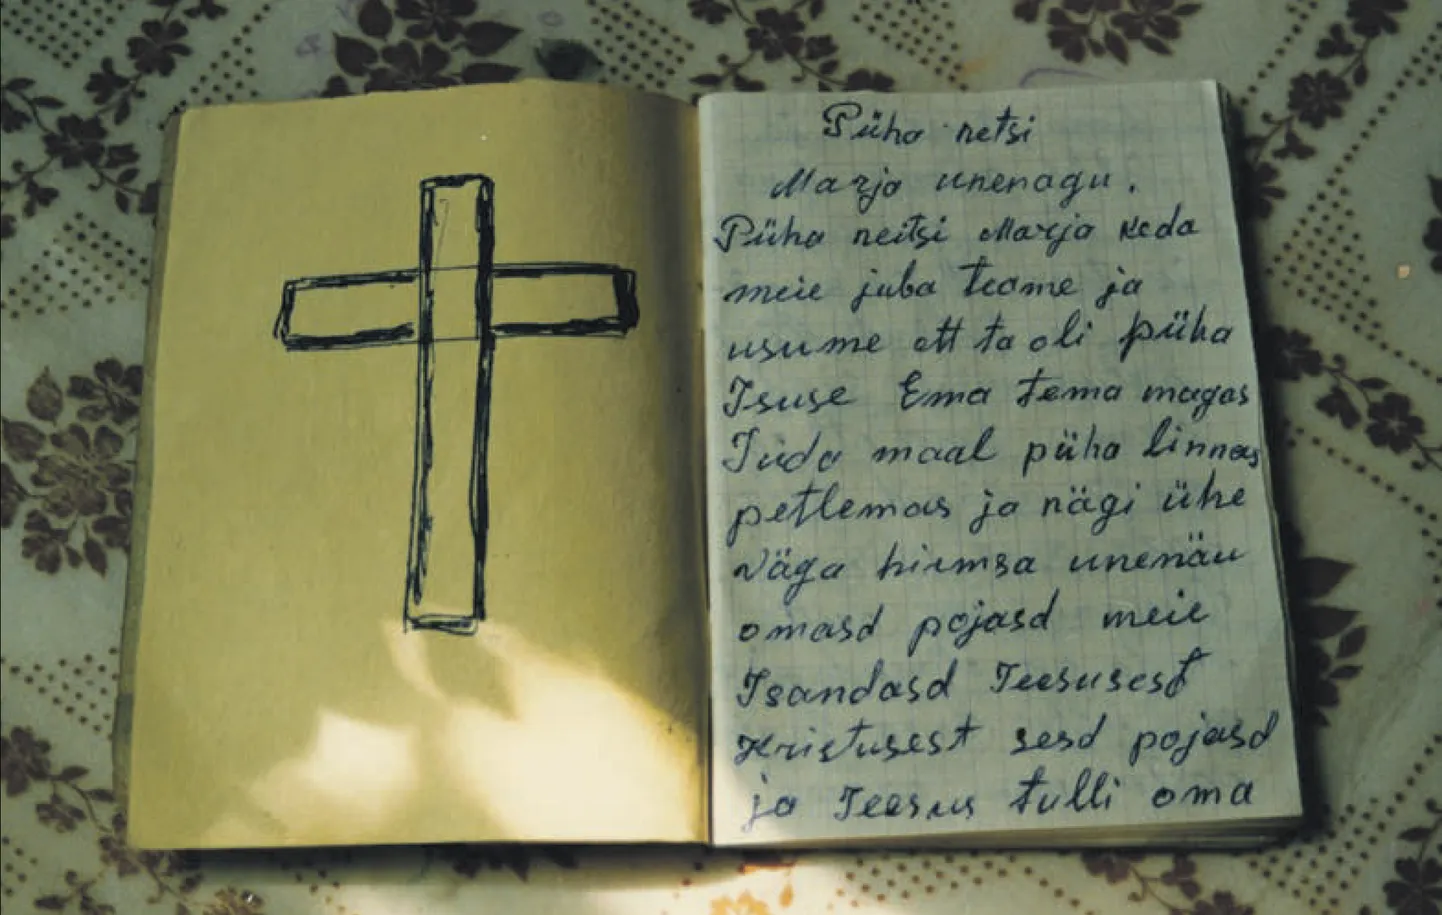 Püha netsi
Marja unenagu.
Püha neitsi Marja keda
meie juba teame ja
usume ett ta oli püha
Isuse Ema tema magas
Juda maal püha linnas
petlemas ja nägi ühe
väga hirmsa unenäu
omasd pojasd meie
Isandasd Jeesusest
Kristusest sesd pojasd
ja Jeesus tulli oma